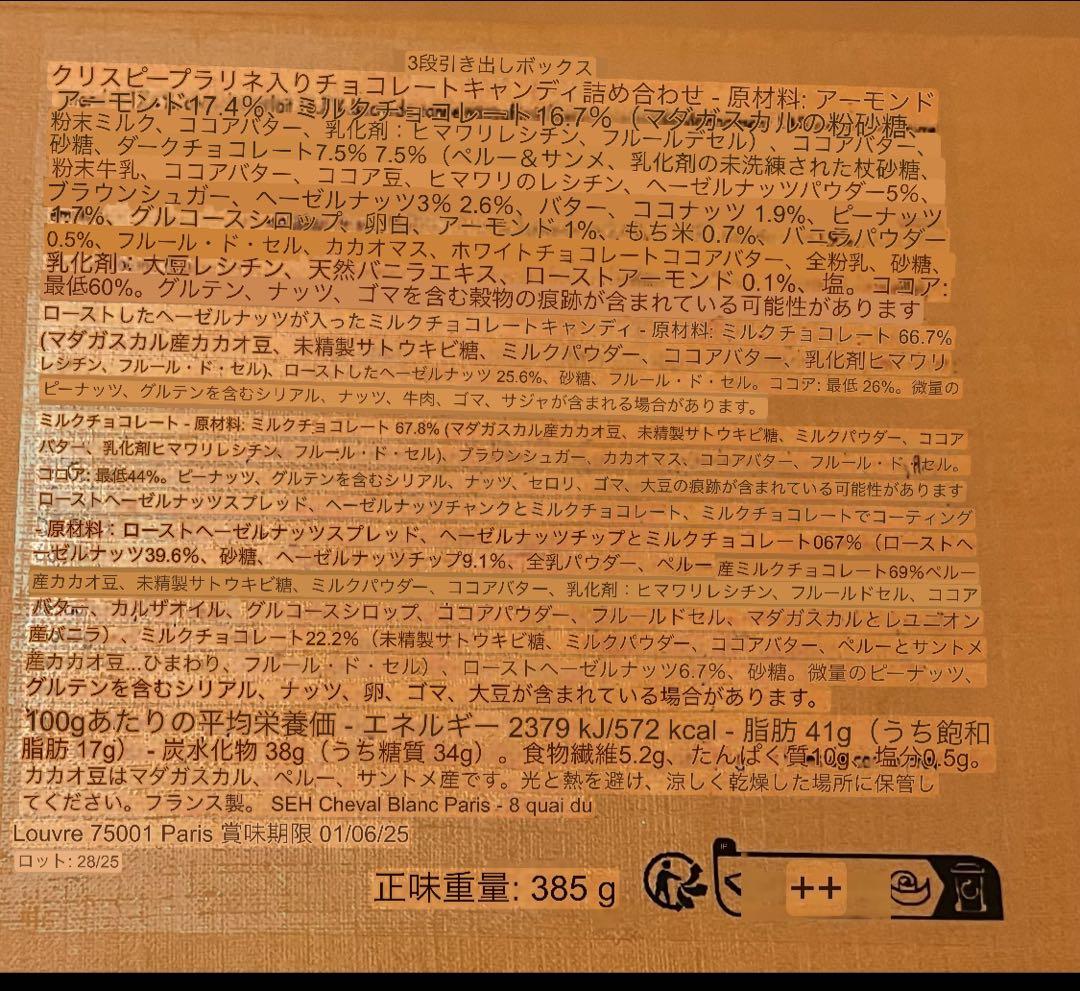 3段引き出しボックス
クリスピープラリネ入りチョコレートキャンディ詰め合わせ - 原材料: アーモンド
アーモンド17.4%、ミルクチョコレート 16.7%（マダガスカルの粉砂糖、
粉末ミルク、ココアバター、乳化剤：ヒマワリレシチン、フルールデセル）、ココアバター、
砂糖、ダークチョコレート7.5% 7.5%（ペルー＆サンメ、乳化剤の未洗練された杖砂糖、
粉末牛乳、ココアバター、ココア豆、ヒマワリのレシチン、ヘーゼルナッツパウダー5%、
ブラウンシュガー、ヘーゼルナッツ3% 2.6%、バター、ココナッツ 1.9%、ピーナッツ
1.7%、グルコースシロップ、卵白、アーモンド 1%、もち米 0.7%、バニラパウダー
0.5%、フルール・ド・セル、カカオマス、ホワイトチョコレートココアバター、全粉乳、砂糖、
乳化剤：大豆レシチン、天然バニラエキス、ローストアーモンド 0.1%、塩。ココア:
最低60%。グルテン、ナッツ、ゴマを含む穀物の痕跡が含まれている可能性があります
ローストしたヘーゼルナッツが入ったミルクチョコレートキャンディ - 原材料: ミルクチョコレート 66.7%
(マダガスカル産カカオ豆、未精製サトウキビ糖、ミルクパウダー、ココアバター、乳化剤ヒマワリ
レシチン、フルール・ド・セル)、ローストしたヘーゼルナッツ 25.6%、砂糖、フルール・ド・セル。ココア: 最低 26%。微量の
ピーナッツ、グルテンを含むシリアル、ナッツ、牛肉、ゴマ、サジャが含まれる場合があります。
ミルクチョコレート - 原材料: ミルクチョコレート 67.8% (マダガスカル産カカオ豆、未精製サトウキビ糖、ミルクパウダー、ココア
バター、乳化剤ヒマワリレシチン、フルール・ド・セル)、ブラウンシュガー、カカオマス、ココアバター、フルール・ド・セル。
ココア: 最低44%。ピーナッツ、グルテンを含むシリアル、ナッツ、セロリ、ゴマ、大豆の痕跡が含まれている可能性があります
ローストヘーゼルナッツスプレッド、ヘーゼルナッツチャンクとミルクチョコレート、ミルクチョコレートでコーティング
- 原材料：ローストヘーゼルナッツスプレッド、ヘーゼルナッツチップとミルクチョコレート067%（ローストヘ
ーゼルナッツ39.6%、砂糖、ヘーゼルナッツチップ9.1%、全乳パウダー、ペルー 産ミルクチョコレート69%ペルー
産カカオ豆、未精製サトウキビ糖、ミルクパウダー、ココアバター、乳化剤：ヒマワリレシチン、フルールドセル、ココア
バター、カルザオイル、グルコースシロップ、ココアパウダー、フルールドセル、マダガスカルとレユニオン
産バニラ）、ミルクチョコレート22.2%（未精製サトウキビ糖、ミルクパウダー、ココアバター、ペルーとサントメ
産カカオ豆...ひまわり、フルール・ド・セル）、ローストヘーゼルナッツ6.7%、砂糖。微量のピーナッツ、
グルテンを含むシリアル、ナッツ、卵、ゴマ、大豆が含まれている場合があります。
100gあたりの平均栄養価 - エネルギー 2379 kJ/572 kcal - 脂肪 41g（うち飽和
脂肪 17g） - 炭水化物 38g（うち糖質 34g）。食物繊維5.2g、たんぱく質10g、塩分0.5g。
カカオ豆はマダガスカル、ペルー、サントメ産です。光と熱を避け、涼しく乾燥した場所に保管し
てください。フランス製。 SEH Cheval Blanc Paris - 8 quai du
Louvre 75001 Paris 賞味期限 01/06/25
ロット: 28/25
正味重量: 385 g
++